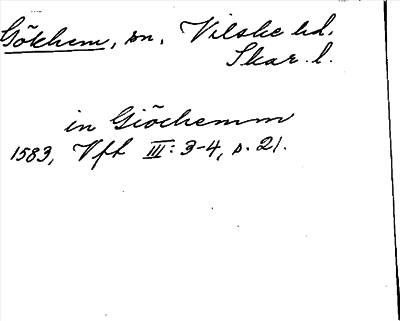 Gökhem, sn, Vilske hd.
Skar. l.
in Giöchemm
1583, Vft III: 3-4, s. 21.